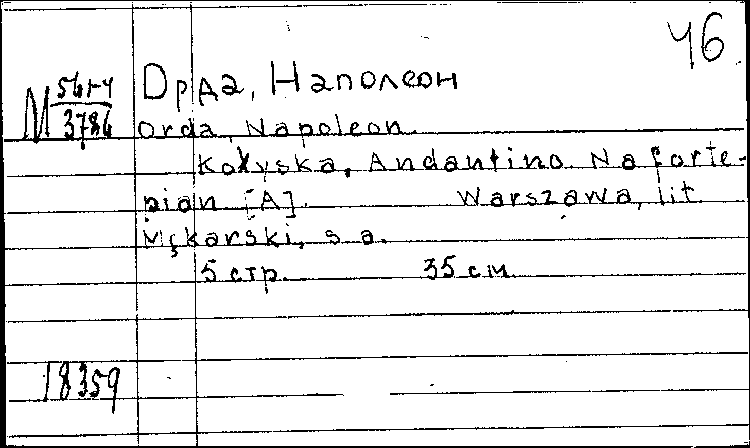 46
М 56г-4
3786
Орда, Наполеон
Orda, Napoleon.
Kołyska, Andantino. Na forte-
pian [A]. Warszawa, lit.
Mękarski, s.a.
5 стр. 35 см.
18359